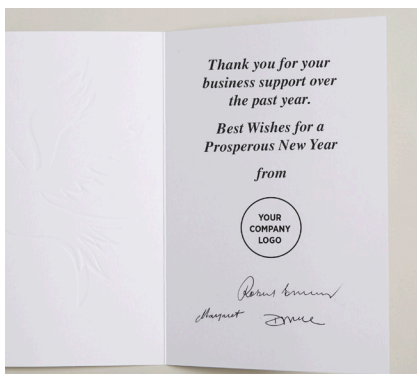 Thank you for your
business support over
the past year.
Best Wishes for a
Prosperous New Year
from
YOUR
COMPANY
LOGO
Robert
Margaret